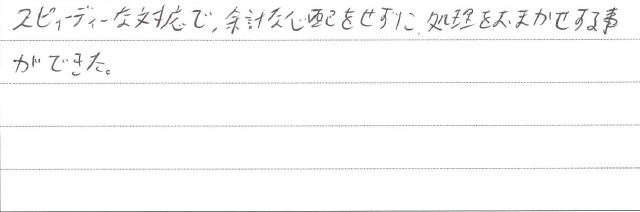 スピーディーな対応で、余計な心配をせずに、処理をおまかせする事
ができた。